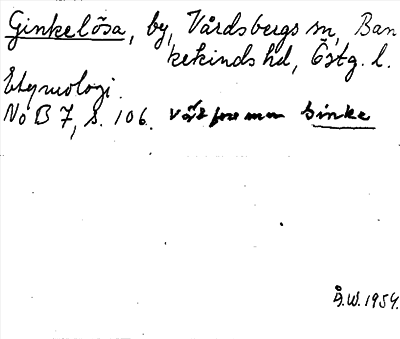 Ginkelösa, by, Vårdsbergs sn, Ban
kekinds hd, Östg. l.
Etymologi.
NoB 7, s. 106. växtforemen Sinke
Å.W. 1954.